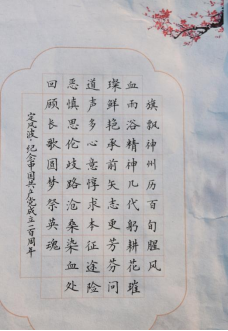 旗飘神州历百旬腥风
血雨浴精神几代躬耕花璀
璨鲜艳承前矢志更芳芬问
道声多心意惇求本征途险
恶慎思伦歧路沧桑染血处
回顾长歌圆梦祭英魂
定风波·纪念中国共产党成立一百周年